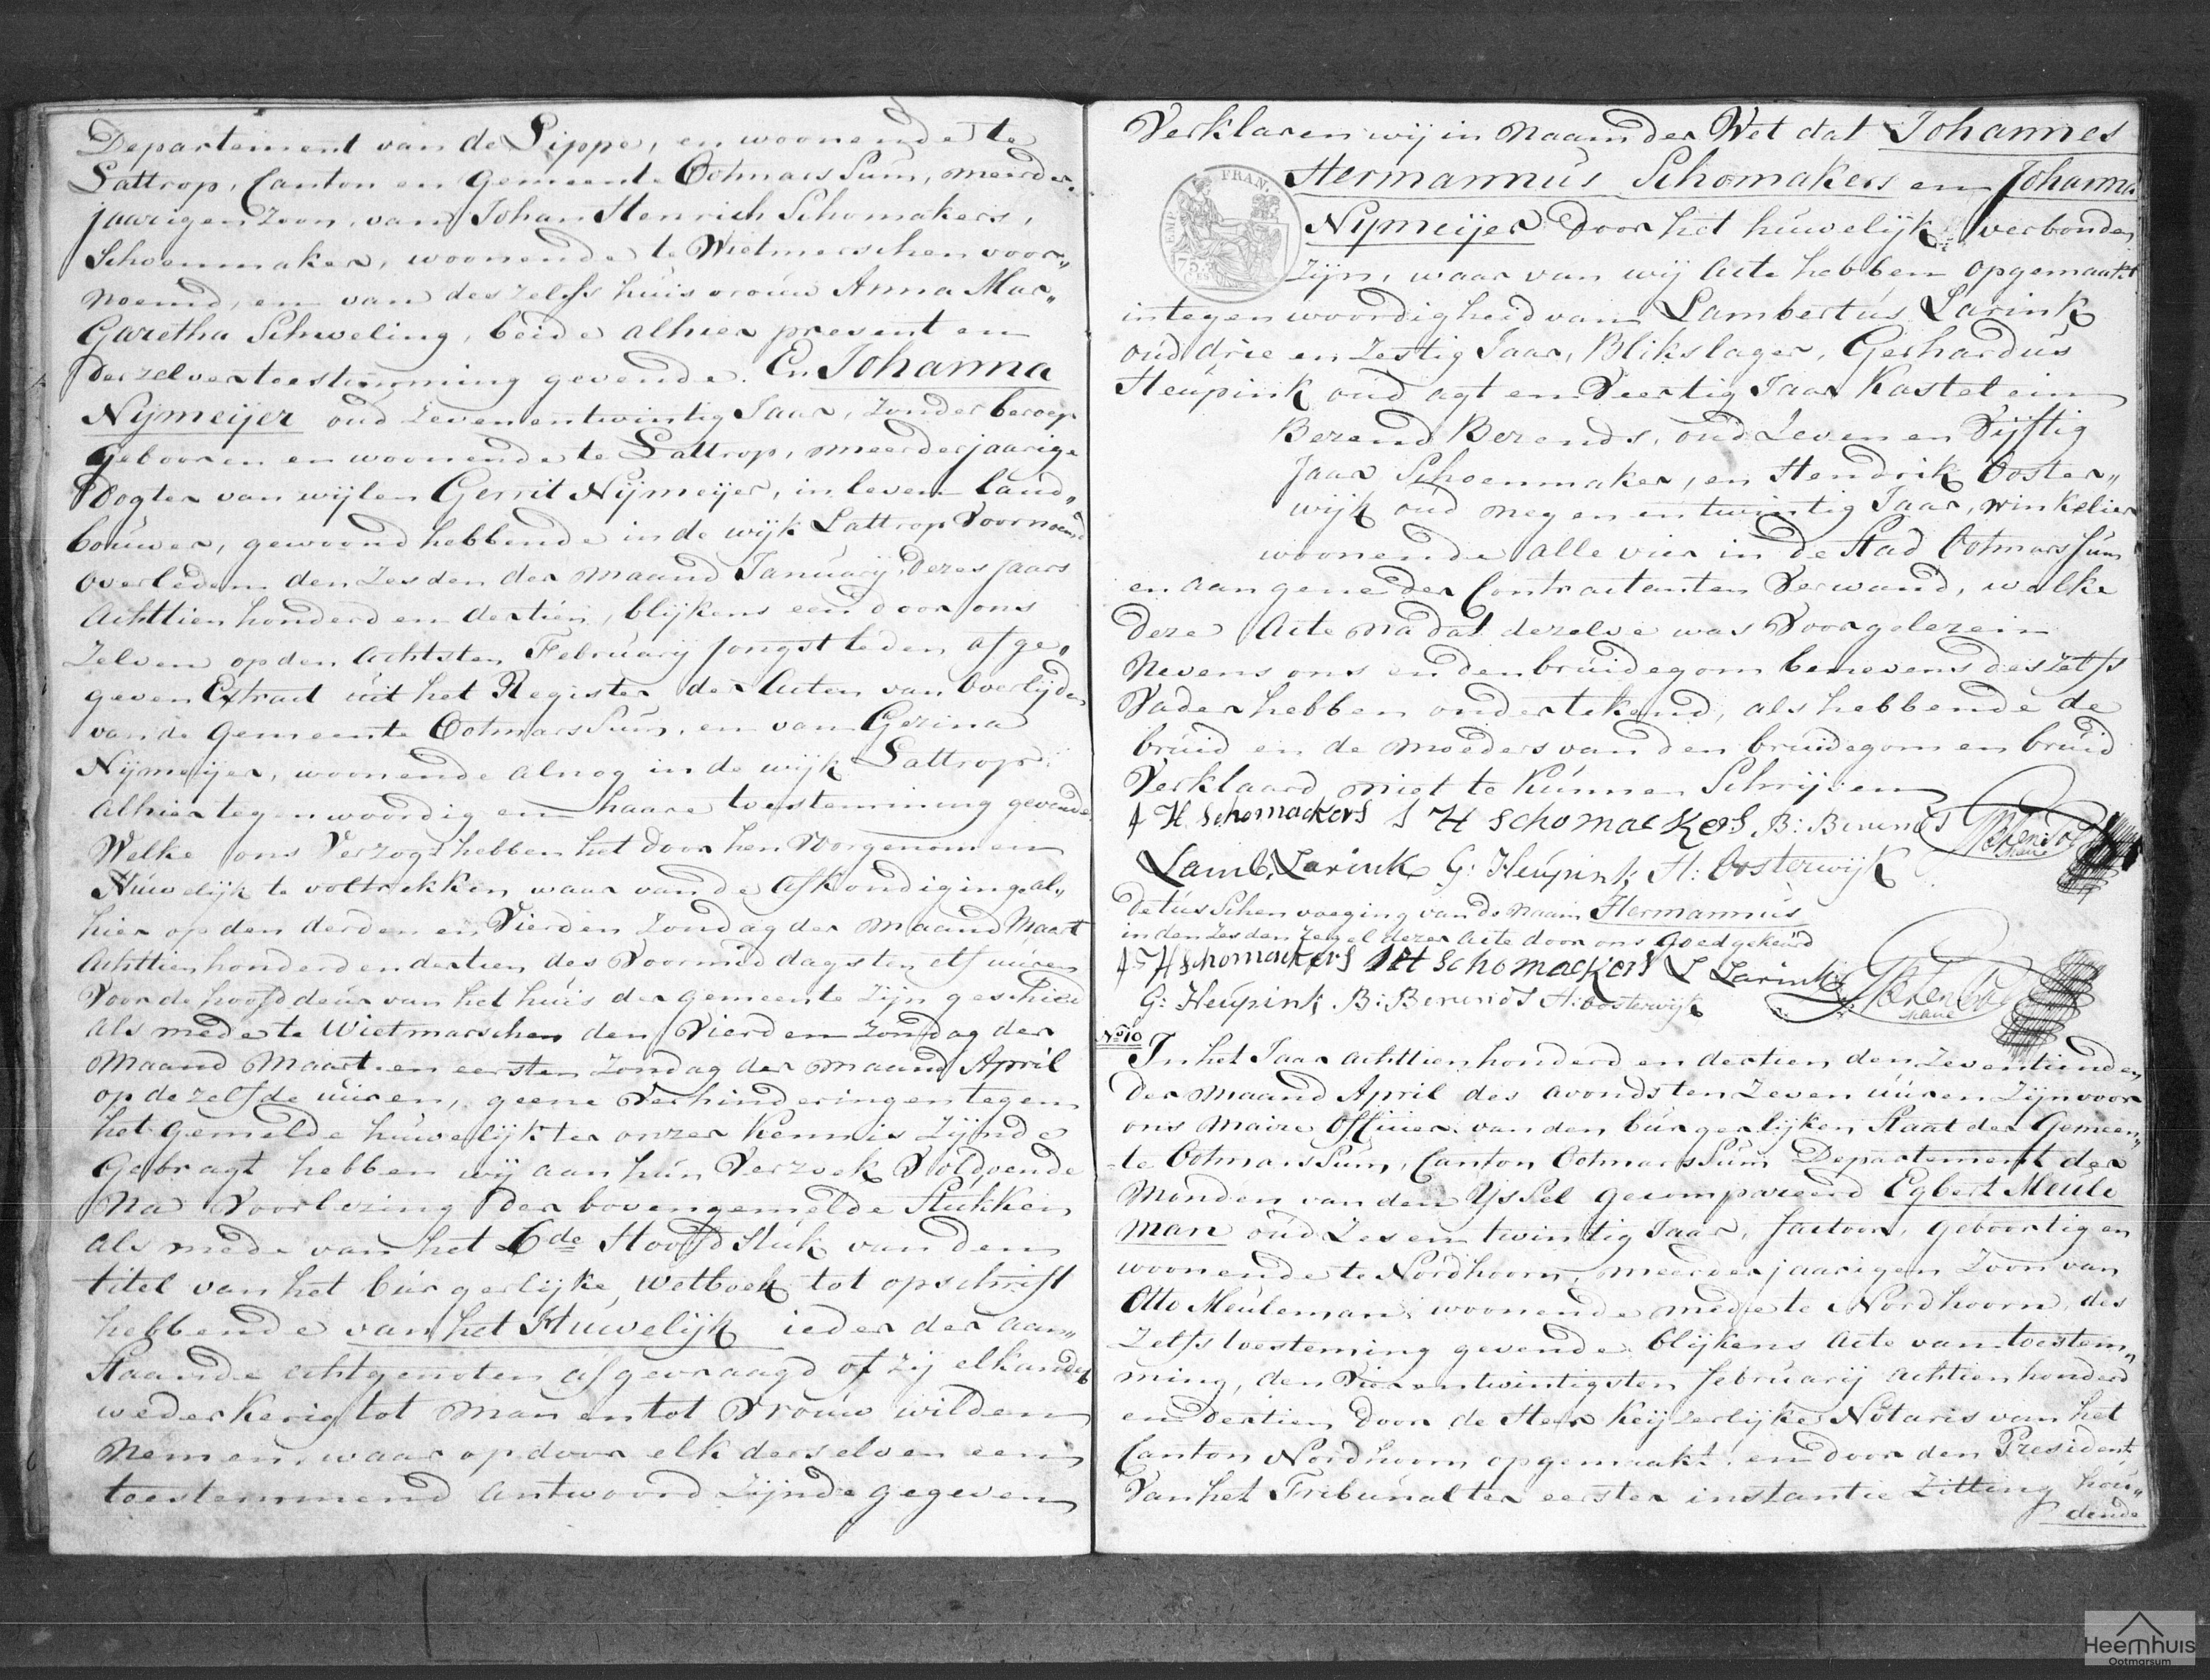 Departement van de Lippe, en woonende te
Lattrop, Canton en Gemeente Ootmarssum, meerder„
jaarigen Zoon, van Johan Henrich Schomakers,
Schoenmaker, woonende te Wietmerschen voor„
noemd, en van deszelfs huisvrouw Anna Mar„
Garetha Schweling, beide alhier present en
derzelver toestimming gevende. En Johanna
Nijmeijer oud Zevenentwintig Jaar, zonder beroep
gebooren en woonende te Lattrop, meerderjaarige
Dogter van wijlen Gerrit Nijmeijer, in leven land„
bouwer, gewoond hebbende in de wijk Lattrop Voornoemd
overleden den Zesden der maand January, dezes jaars
Achttien honderd en dertien, blijkens een door ons
Zelven op den Achtsten February jongst leden afge„
geven Extract uit het Register der Acten van Overlijden
van de Gemeente Ootmarssum, en van Gezina
Nijmeijer, woonende alnog in de wijk Lattrop
alhier tegenwoordig en haare toestemming gevende.
Welke ons Verzogt hebben het door hen Voorgenomen
Huwelijk te voltrekken, waar van de Afkondiging al„
hier op den derden en Vierden Zondag der maand Maart
Achttienhonderd en dertien des Voormiddags ten elf uuren
Voor de hoofddeur van het huis der gemeente zijn geschied
als mede te Wietmarschen den Vierden Zondag der
Maand Maart en eersten Zondag der maand April
op dezelfde uuren, geene Verhinderingen tegen
het gemelde huwelijk ter onzer kennis Zijnde
Gebragt hebben wij aan hun Verzoek Voldoende
Na Voorlezing der bovengemelde Stukken
als mede van het 6de Hoofdstuk van den
titel van het burgerlijke wetboek tot opschrift
hebbende van het Huwelijk ieder der aan„
staande echtgenoten afgevraagd of zij elkander
wederkerig tot man en tot Vrouw wilden
Nemen, waar op door elk derselven een
toestemmend Antwoord Zijnde gegeven
Verklaren wij in Naam der Wet dat Johannes
Hermannus Schomakers en Johanna
Nijmeijer Door het huwelijk verbonden
Zijn, waar van wij Acte hebben opgemaakt
in tegenwoordigheid van Lambertus Larink
oud drie en Zestig Jaar, Blikslager, Gerhardus
Heupink oud agt en Veertig Jaar Kastelein
Berend Berends, oud Zeven en Vijftig
Jaar Schoenmaker, en Hendrik Ooster„
wijk oud negen en twintig Jaar, winkelier
woonende alle vier in de Stad Ootmarssum
en aan gene der Contractanten Verwand, welke
Deze Acte nadat dezelve was Voorgelezen
Nevens ons en den bruidegom benevens deszelfs
Vader hebben ondertekend, als hebbende de
bruid en de moeders van den bruidegom en bruid
Verklaard niet te Kunnen Schrijven
J H Schomackers J H Schomackers B: Berends
Lamb. Larink G: Heupink H: Oosterwijk
De tusschen voeging van de Naam Hermannus
in den Zesden regel dezer Acte door ons Goedgekeurd
J H Schomackers J H Schomackers L Larink
G: Heupink B: Berends H: Oosterwijk
No 10
In het Jaar Achttienhonderd en dertien den Zeventienden
Der Maand April des avonds ten Zeven uuren Zijn voor
ons Maire Officier van den burgerlijken Staat der Gemeen„
te Ootmarssum, Canton Ootmarssum Departement der
Monden van den IJssel gecompareerd Egbert Meule
man oud Zes en twintig Jaar, factoor, geboortig en
woonende te Nordhoorn, meerderjaarigen Zoon van
Otto Meuleman, woonende mede te Nordhoorn, des
Zelfs toesteming gevende blijkens Acte van toestem„
ming, den Vierentwintigsten februarij Achtienhonderd
en Dertien door de Heer Keijzerlijke Notaris van het
Canton Nordhoorn opgemaakt en door den President
Van het Tribunal ter eerster instantie Zitting hou„
dende
FRAN.
EMP
Heemhuis
Ootmarsum